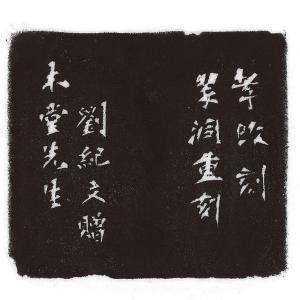 孝欧刻
翠润重刻
劉紀文贈
木堂先生